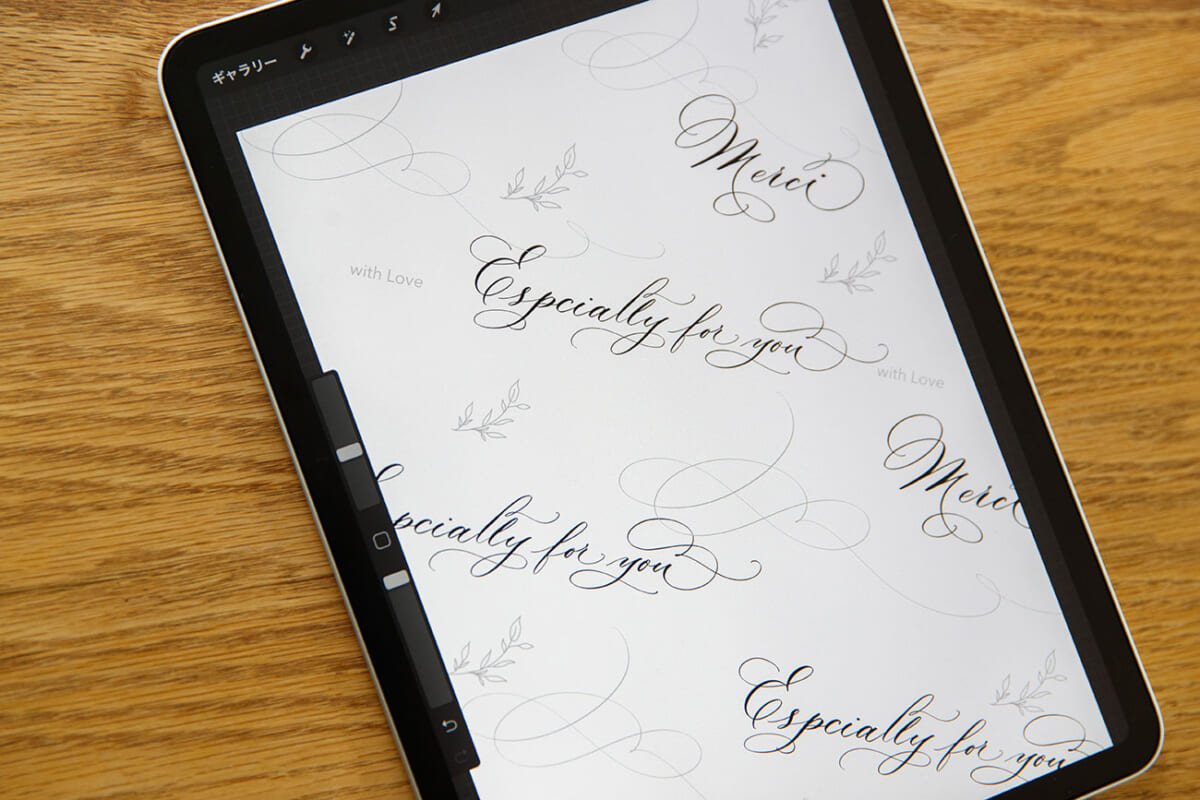 ギャラリー
Merci
with Love
Espcially for you
with Love
Merci
pcially for you
Espcially for you